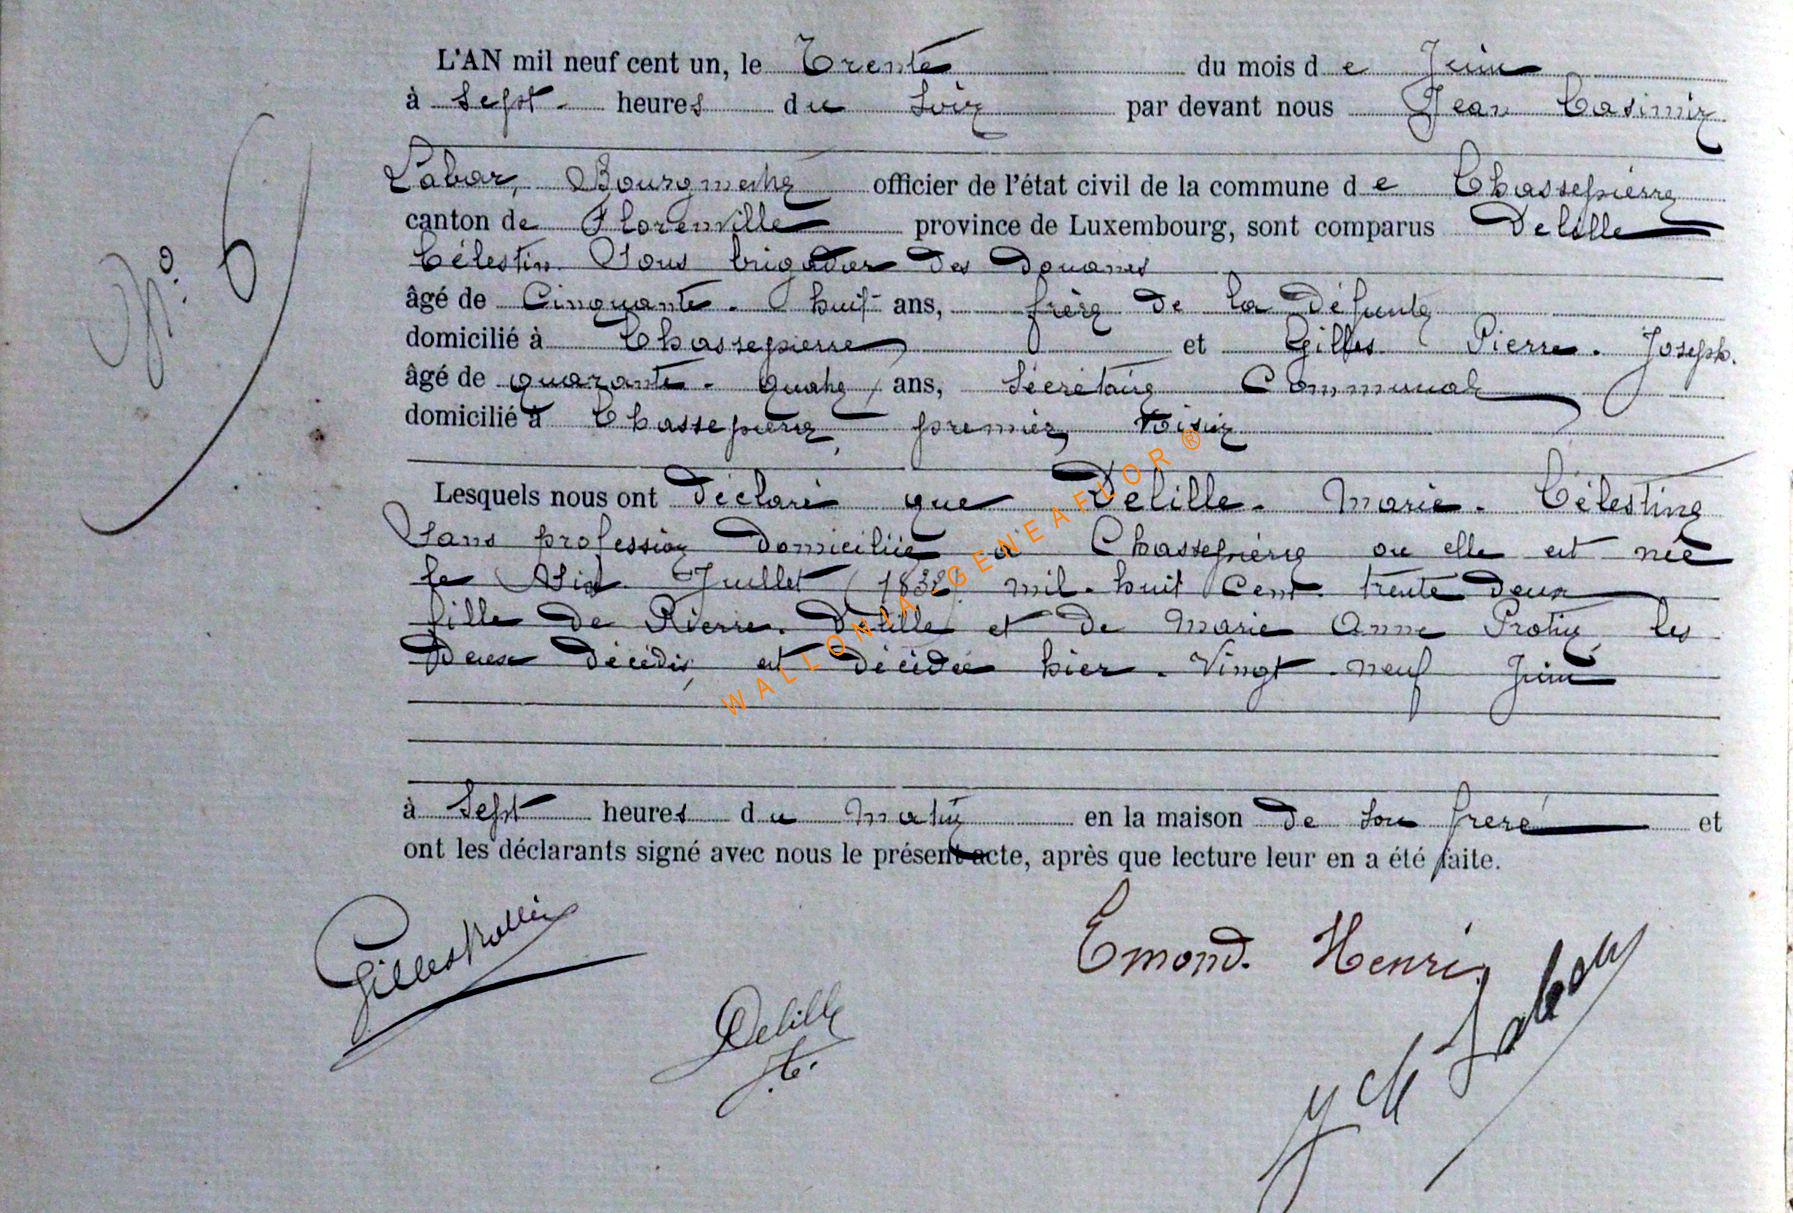 N° 6
L'AN mil neuf cent un, le Trente du mois de Juin
à sept heures du soir par devant nous Jean Casimir
Labar, Bourgmestre officier de l'état civil de la commune de Chassepierre
canton de Florenville province de Luxembourg, sont comparus Delille
Célestin Sous brigadier des douanes
âgé de Cinquante-huit ans, frère de la défunte
domicilié à Chassepierre et Gilles Pierre-Joseph.
âgé de quarante-quatre ans, Sécrétaire Communal
domicilié à Chassepierre, premier voisin
Lesquels nous ont déclaré que Delille-Marie-Célestine
sans profession domiciliée à Chassepierre ou elle est née
le six Juillet (1832) mil-huit cent trente deux
fille de Pierre Delille et de Marie Anne Protin, les
deux décédés, est décédée hier-vingt-neuf Juin
à sept heures du matin en la maison de son frère et
ont les déclarants signé avec nous le présent acte, après que lecture leur en a été faite.
Gilles
Emond. Henri.
Delille
Labar
WALLONIA GENEAFLOR ®